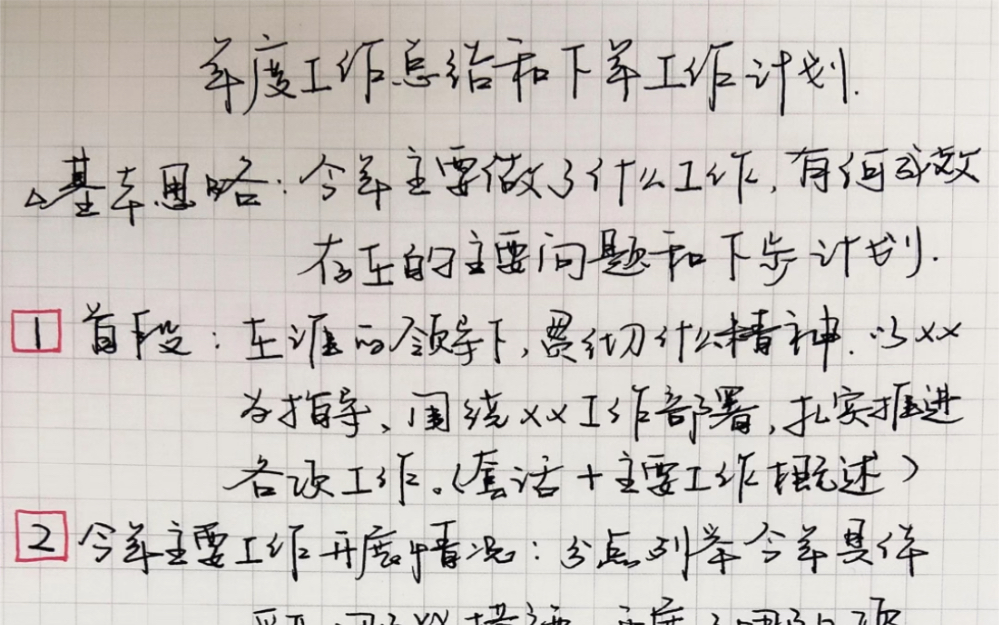 年度工作总结和下年工作计划.
△基本思路:今年主要做了什么工作,有何成效
存在的主要问题和下步计划.
1 首段:在谁的领导下,贯彻什么精神.以xx
为指导、围绕xx工作部署,扎实推进
各项工作。(套话+主要工作概述)
2 今年主要工作开展情况:分点列举今年具体